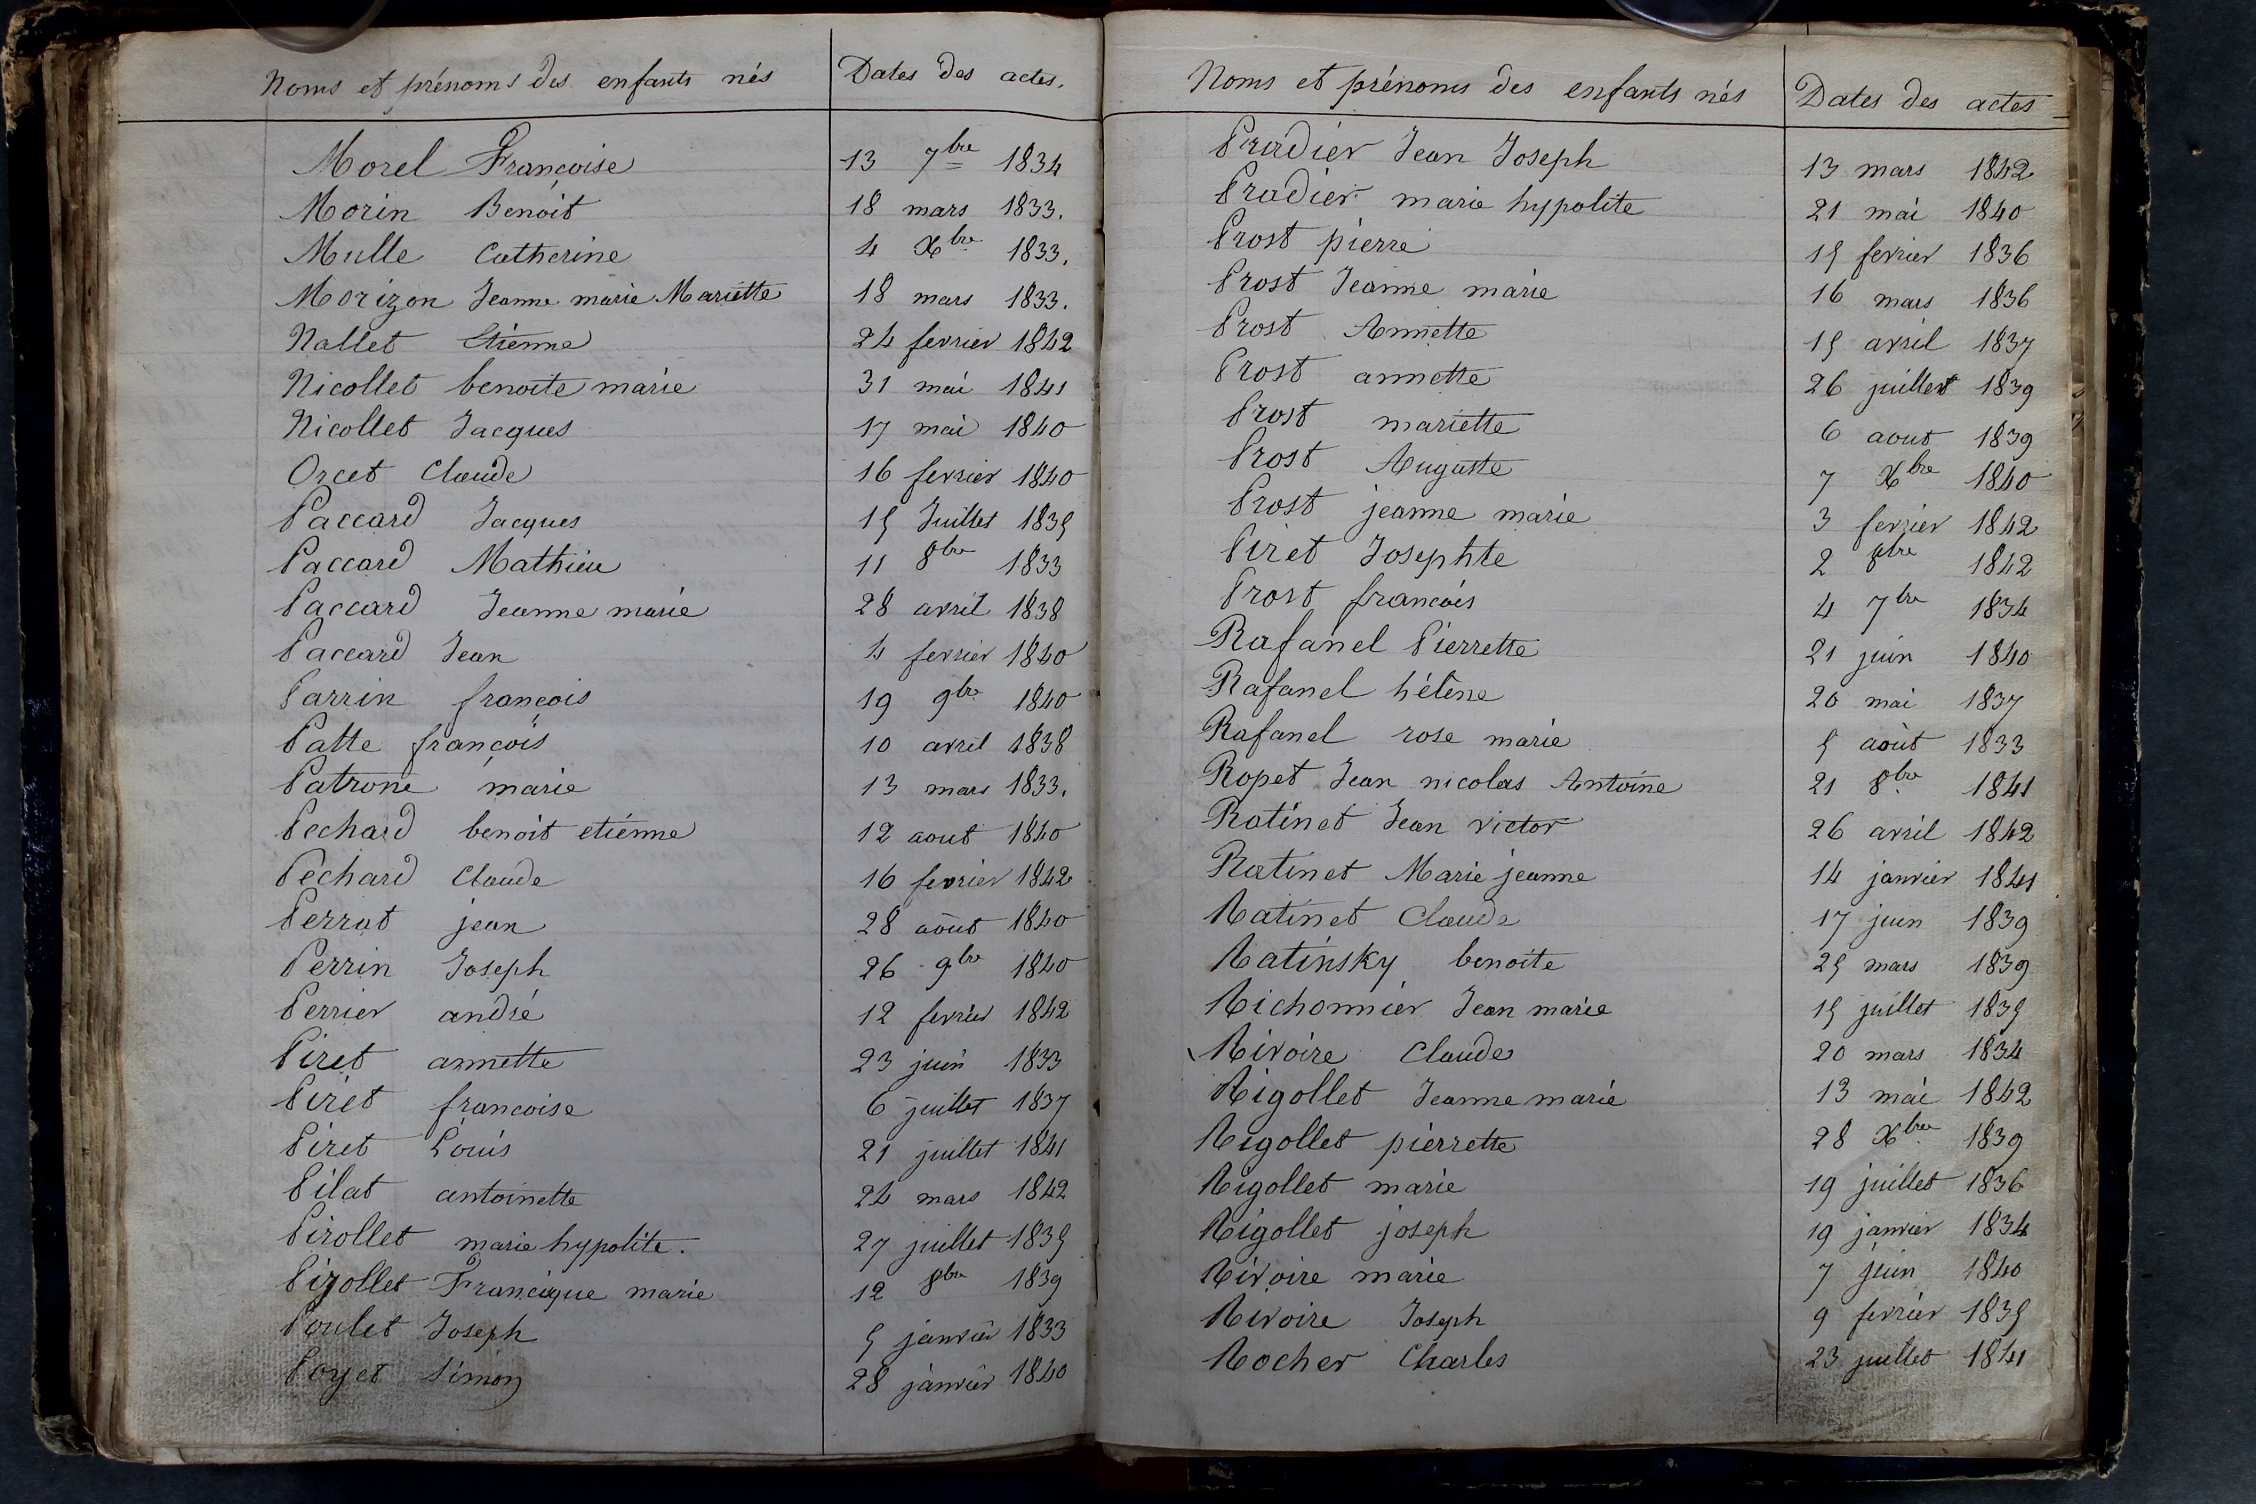 Noms et prénoms des enfants nés Dates des actes.
Morel Françoise 13 7bre 1834
Morin Benoit 18 mars 1833.
Mulle Catherine 4 Xbre 1833.
Morizon Jeanne marie Mariette 18 mars 1833.
Nallet Etienne 24 fevrier 1842
Nicollet benoite marie 31 mai 1841
Nicollet Jacques 17 mai 1840
Orcet Claude 16 fevrier 1840
Paccard Jacques 15 Juillet 1835
Paccard Mathieu 11 8bre 1833
Paccard Jeanne marie 28 avril 1838
Paccard Jean 4 fevrier 1840
Parrin françois 19 9bre 1840
Patte françois 10 avril 1838
Patrone marie 13 mars 1833.
Pechard benoit etienne 12 aout 1840
Pechard Claude 16 fevrier 1842
Perrat jean 28 aout 1840
Perrin Joseph 26 9bre 1840
Perrier andré 12 fevrier 1842
Piret annette 23 juin 1833
Piret francoise 6 juillet 1837
Piret Louis 21 juillet 1841
Pilat antoinette 24 mars 1842
Pirollet marie hypolite. 27 juillet 1835
Pizollet Francique marie 12 8bre 1839
Poulet Joseph 5 janvier 1833
Poyet Simon 28 janvier 1840
Noms et prénoms des enfants nés Dates des actes
Pradier Jean Joseph 13 mars 1842
Pradier marie hypolite 21 mai 1840
Prost pierre 15 fevrier 1836
Prost Jeanne marie 16 mars 1836
Prost Annette 15 avril 1837
Prost annette 26 juillet 1839
Prost mariette 6 aout 1839
Prost Auguste 7 Xbre 1840
Prost jeanne marie 3 fevrier 1842
Piret Josephte 2 8bre 1842
Prost francois 4 7bre 1834
Rafanel Pierrette 21 juin 1840
Rafanel hélène 20 mai 1837
Rafanel rose marie 5 août 1833
Ropet Jean nicolas Antoine 21 8bre 1841
Ratinet Jean victor 26 avril 1842
Ratinet Marie jeanne 14 janvier 1841
Ratinet Claude 17 juin 1839
Ratinsky benoite 25 mars 1839
Richonnier Jean marie 15 juillet 1835
Rivoire Claude 20 mars 1834
Rigollet Jeanne marie 13 mai 1842
Rigollet pierrette 28 Xbre 1839
Rigollet marie 19 juillet 1836
Rigollet joseph 19 janvier 1834
Rivoire marie 7 juin 1840
Rivoire Joseph 9 fevrier 1835
Rocher Charles 23 juillet 1841